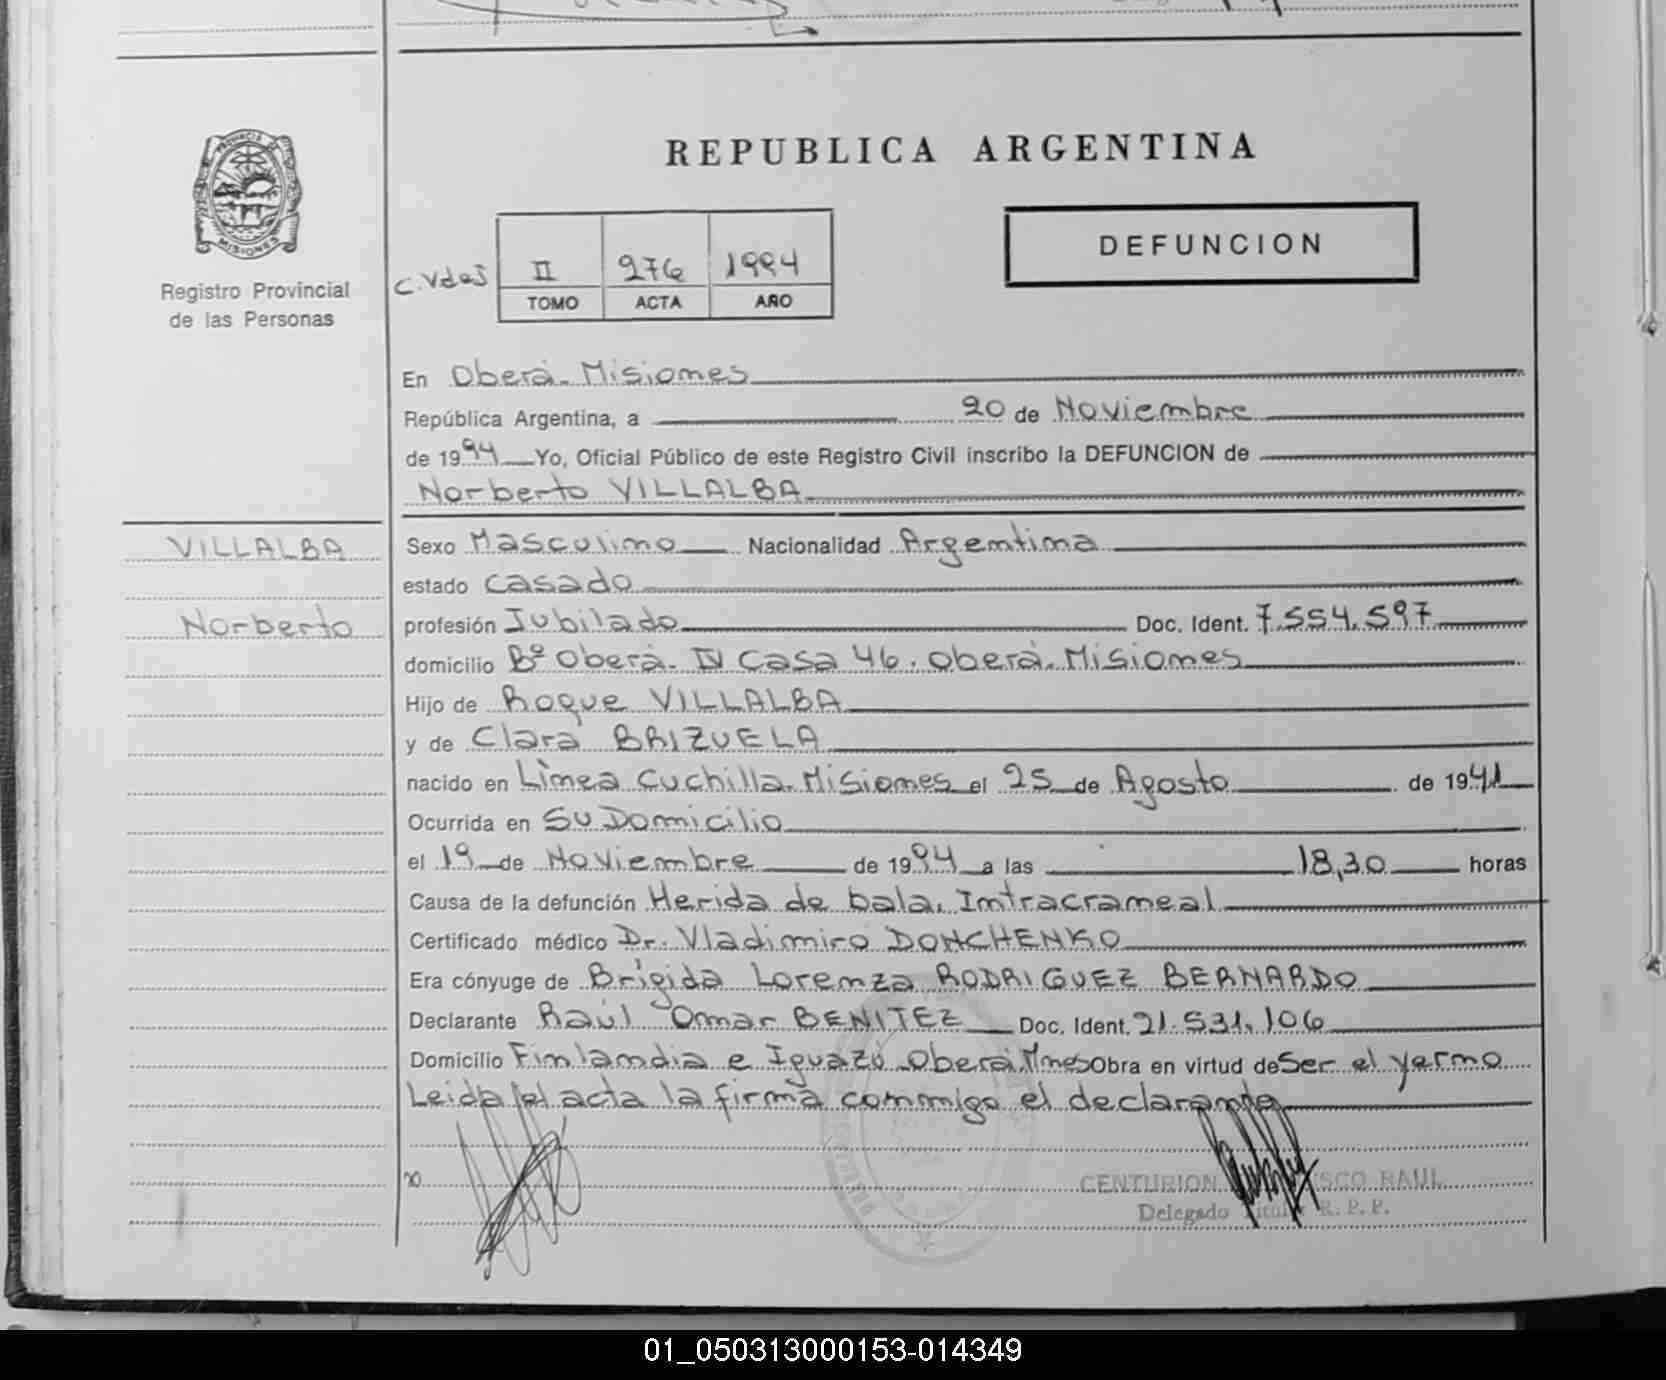 REPUBLICA ARGENTINA
PROVINCIA DE
MISIONES
Registro Provincial
de las Personas
C.Vdas
II 276 1994
TOMO ACTA AÑO
DEFUNCION
En Oberá. Misiones
República Argentina, a 20 de Noviembre
de 1994 Yo, Oficial Público de este Registro Civil inscribo la DEFUNCION de
Norberto VILLALBA
VILLALBA
Norberto
Sexo Masculino Nacionalidad Argentina
estado casado
profesión Jubilado Doc. Ident. 7.554.597
domicilio Bº Oberá. IV Casa 46. Oberá. Misiones
Hijo de Roque VILLALBA
y de Clara BRIZUELA
nacido en Linea Cuchilla. Misiones el 25 de Agosto de 1941
Ocurrida en Su Domicilio
el 19 de Noviembre de 1994 a las 18,30 horas
Causa de la defunción Herida de bala. Intracraneal
Certificado médico Dr. Vladimiro DONCHENKO
Era cónyuge de Brígida Lorenza RODRIGUEZ BERNARDO
Declarante Raúl Omar BENITEZ Doc. Ident. 21.531.106
Domicilio Finlandia e Iguazú Oberá. Mnes Obra en virtud de Ser el yerno
Leida el acta la firma conmigo el declarante
CENTURION SCO RAUL
Delegado Titular R. P. P.
01_050313000153-014349